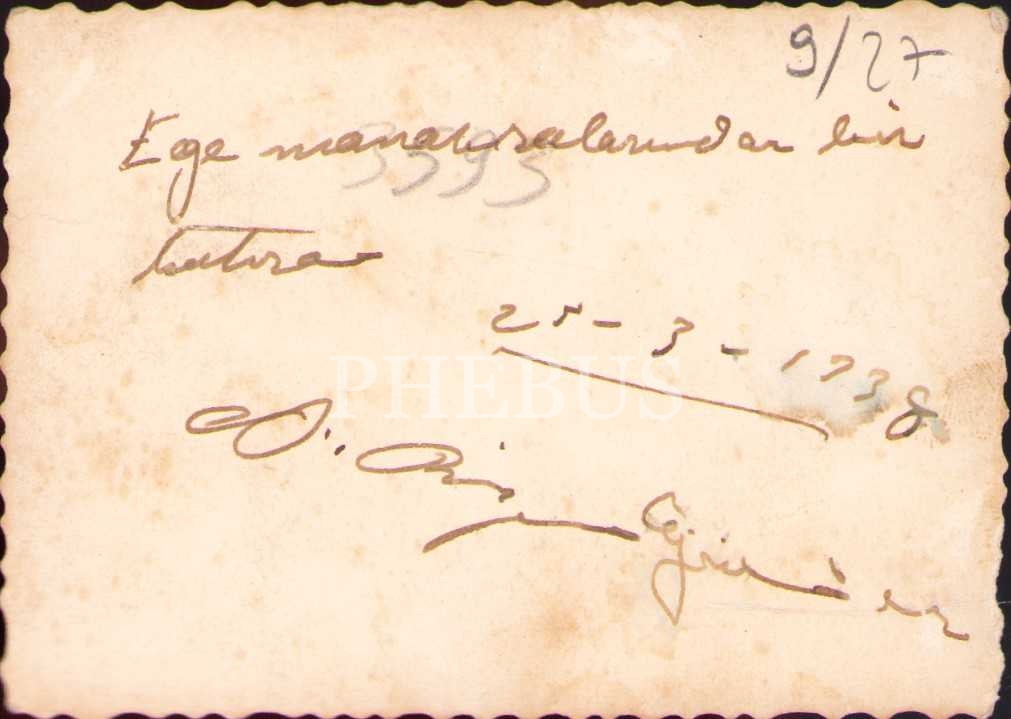 9/27
Ege manavralarından bir
hatıra
3393
25-3-1938
PHEBUS